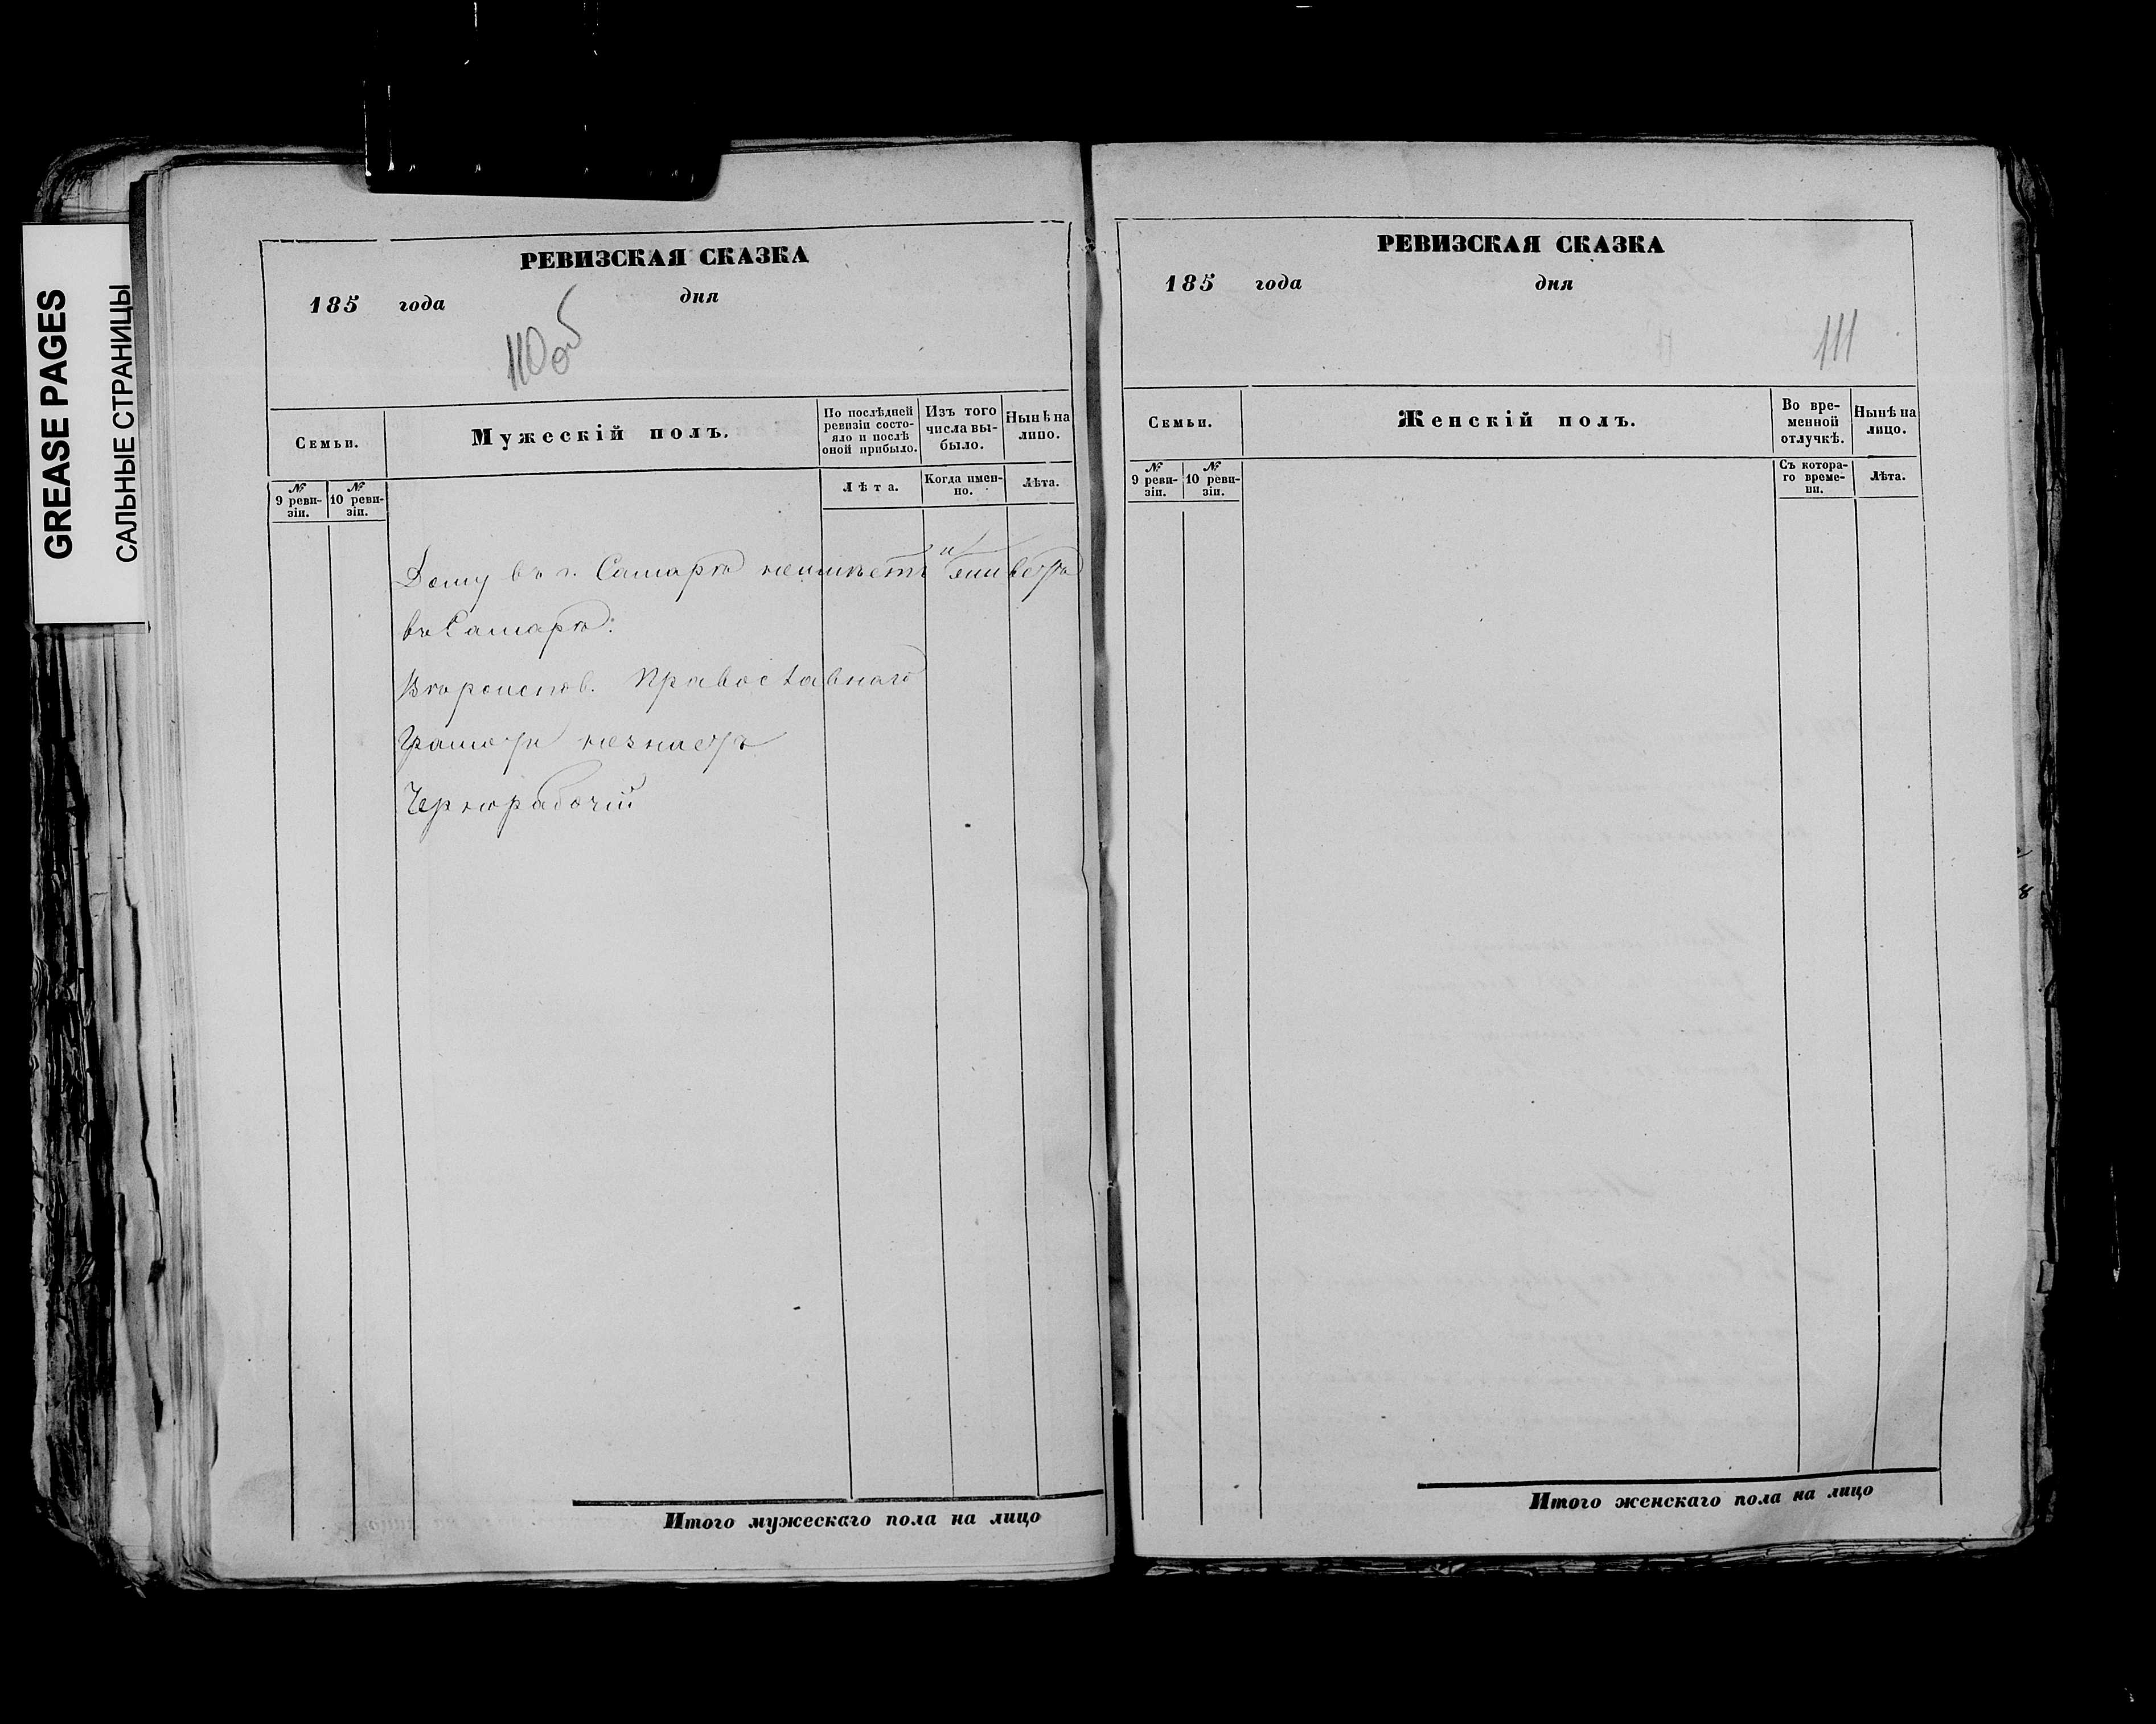 GREASE PAGES
САЛЬНЫЕ СТРАНИЦЫ
РЕВИЗСКАЯ СКАЗКА
185 года дня
110 об
Семьи.
Мужескій полъ.
По послѣдней ревизіи состояло и послѣ оной прибыло.
Изъ того числа выбыло.
Нынѣ на лицо.
№ 9 ревизіи.
№ 10 ревизіи.
Лѣта.
Когда именно.
Лѣта.
Дому въ г. Самарѣ неимѣетъ и живетъ
въ Самарѣ.
Вѣроиспов. Православнаго
Грамоти незнаетъ
Чернорабочій
Итого мужескаго пола на лицо
РЕВИЗСКАЯ СКАЗКА
185 года дня
111
Семьи.
Женскій полъ.
Во временной отлучкѣ.
Нынѣ на лицо.
№ 9 ревизіи.
№ 10 ревизіи.
Съ котораго времени.
Лѣта.
Итого женскаго пола на лицо